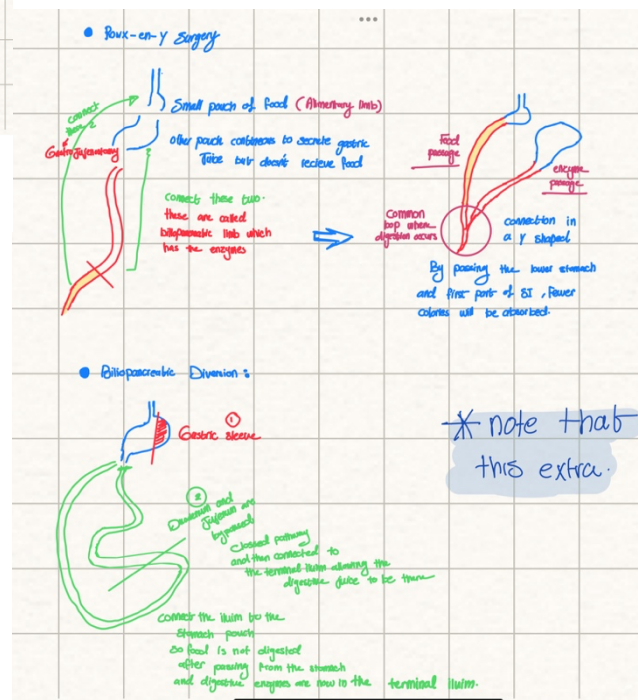 Roux-en-y Surgery
connect
these 2
Small pouch of food (Alimentary limb)
other pouch continues to secrete gastric
Tube but doesn't recieve food
connects these two.
these are called
biliopancreatic limb which
has the enzymes
Food
passage
enzyme
passage
Common
loop where
digestion occurs
connection in
a Y shaped
By passing the lower stomach
and first part of SI, Fewer
calories will be absorbed.
Biliopancreatic Diversion:
1
Gastric sleeve
* note that
this extra.
2
Duodenum and
Jejunum are
bypassed
Closed pathway
and then connected to
the terminal ilium allowing the
digestive juice to be there
connect the ilium to the
stomach pouch
so food is not digested
after passing from the stomach
and digestive enzymes are now in the terminal ilium.